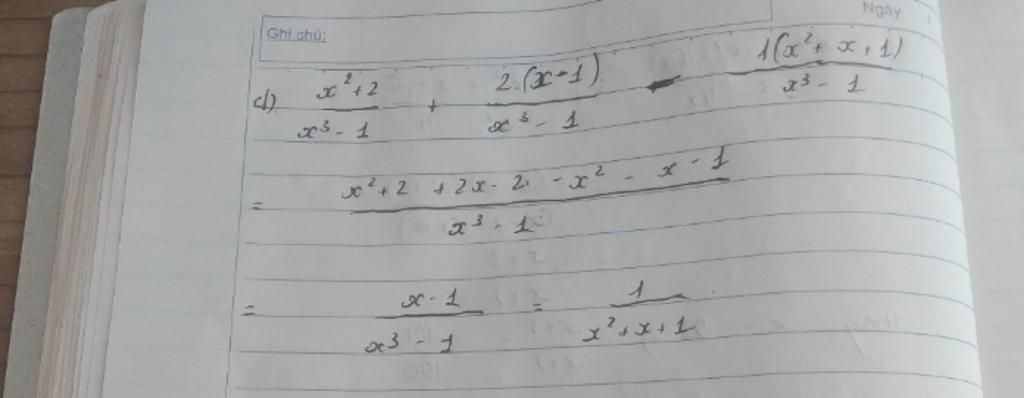 Ngày
Ghi chú:
c) \frac{x^2+2}{x^3-1} + \frac{2.(x-1)}{x^3-1} - \frac{1(x^2+x+1)}{x^3-1}
= \frac{x^2+2+2x-2-x^2-x-1}{x^3-1}
= \frac{x-1}{x^3-1} = \frac{1}{x^2+x+1}